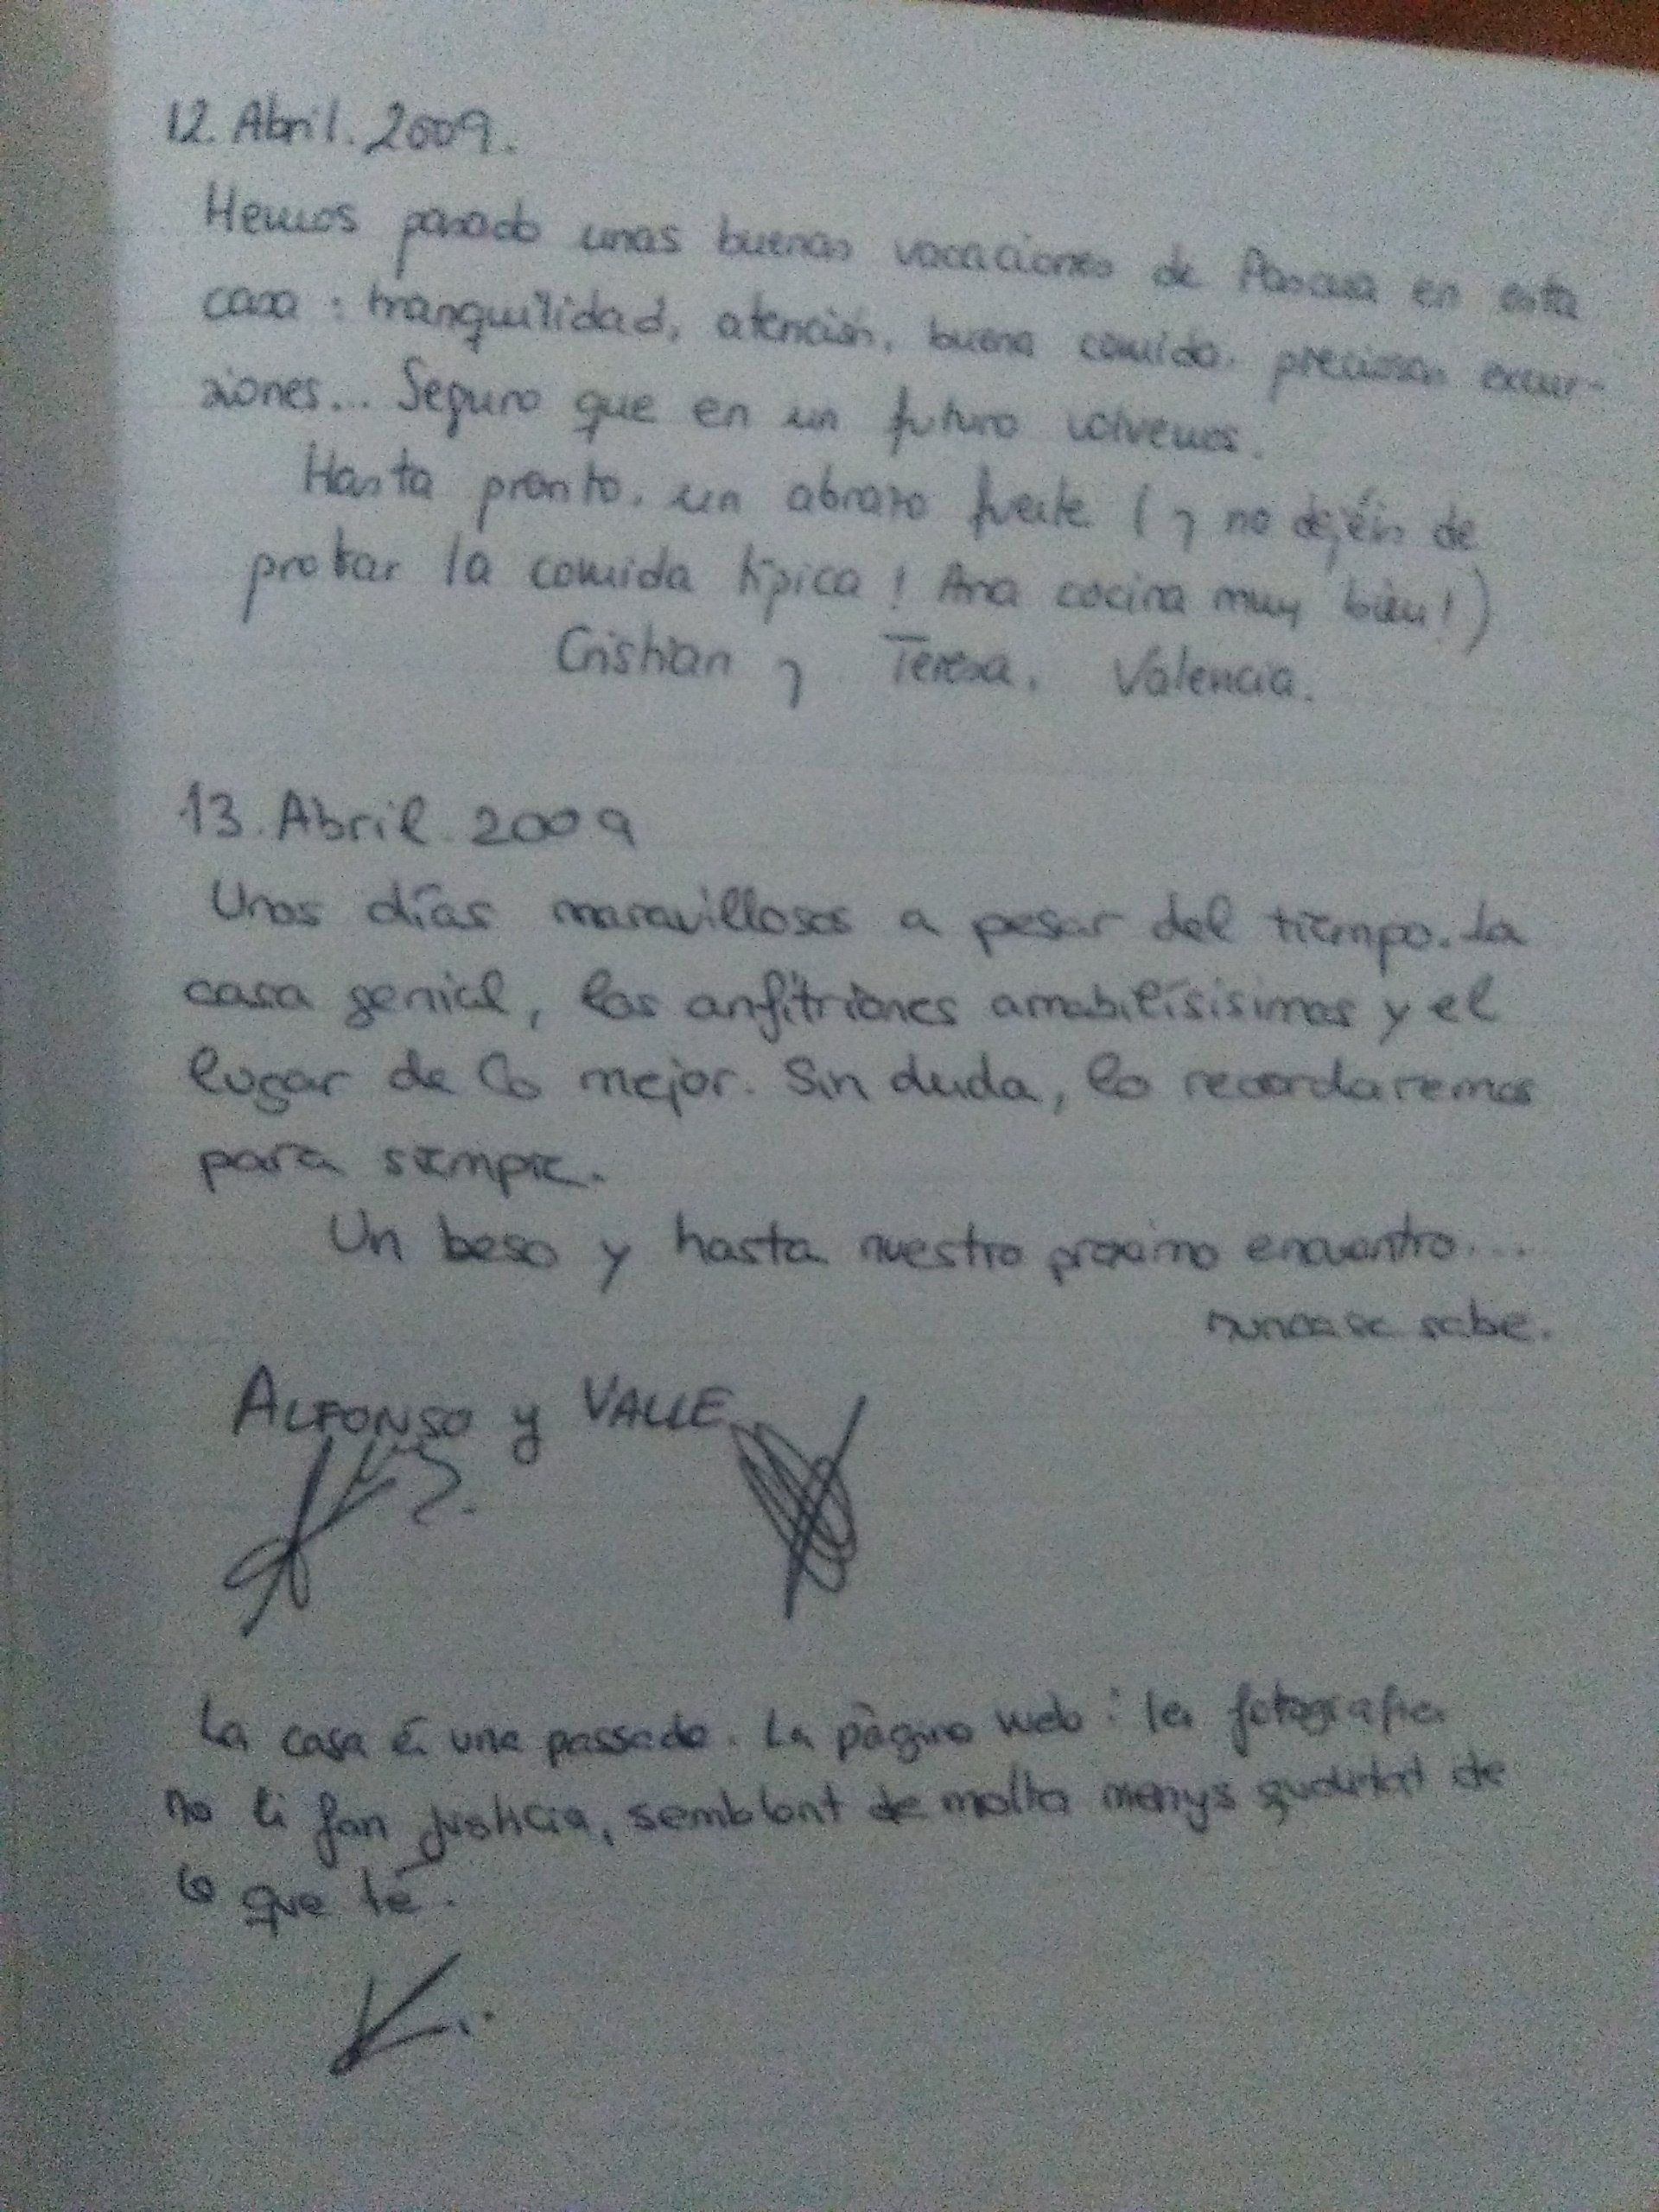 12. Abril. 2009.
Hemos pasado unas buenas vacaciones de Pascua en esta
casa: tranquilidad, atención, buena comida, preciosas excur-
siones... Seguro que en un futuro volvemos.
Hasta pronto, un abrazo fuerte (y no dejéis de
probar la comida típica! Ana cocina muy bien!)
Cristian y Teresa. Valencia.
13. Abril. 2009
Unos días maravillosos a pesar del tiempo. La
casa genial, los anfitriones amabilísisimos y el
lugar de lo mejor. Sin duda, lo recordaremos
para siempre.
Un beso y hasta nuestro próximo encuentro...
nunca se sabe.
ALFONSO y VALLE
La casa és una passada. La pàgina web: les fotografies
no li fan justicia, semblant de molta menys qualitat de
lo que té.